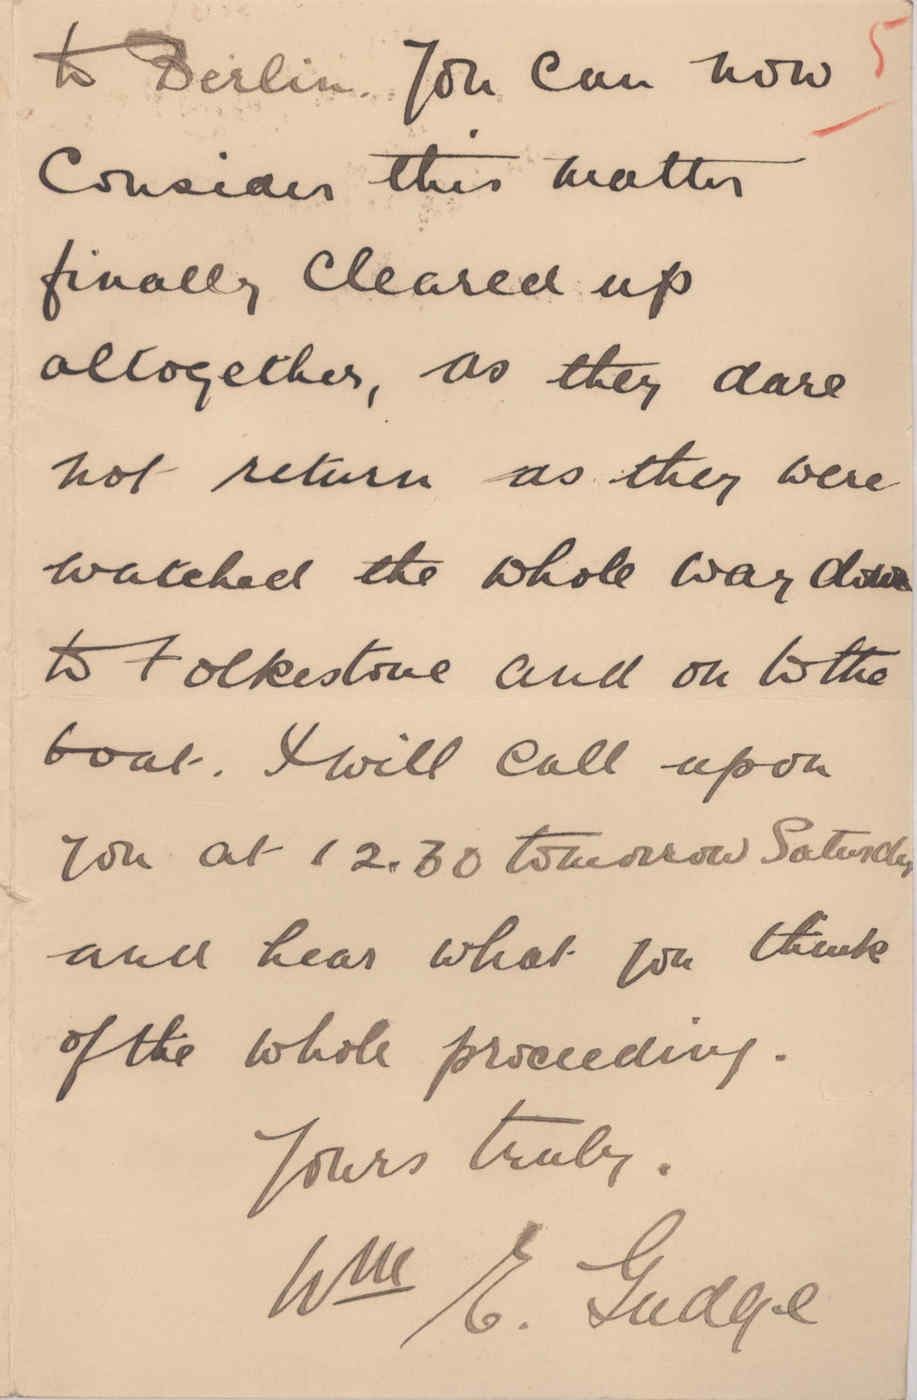 5
to Berlin. You can now
Consider this matter
finally Cleared up
altogether, as they dare
not return as they were
watched the whole way down
to Folkestone and on to the
boat. I will call upon
you at 12.30 tomorrow Saturday
and hear what you think
of the whole proceeding.
Yours truly.
Wm E. Gudge